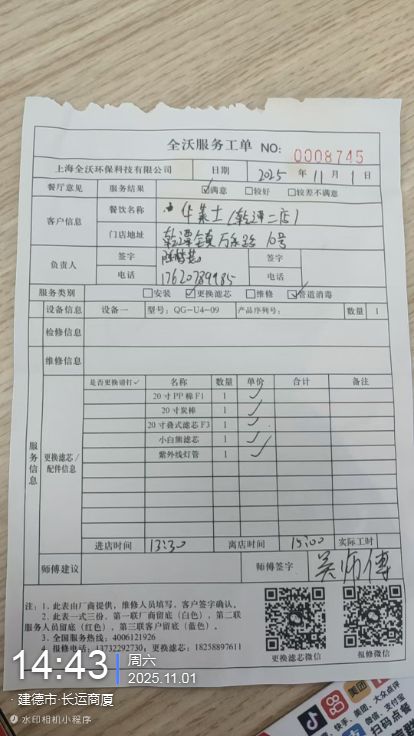 全沃服务工单 NO: 0008745
上海全沃环保科技有限公司 日期 2025年11月1日
餐厅意见 服务结果 ☑满意 □较好 □较差不满意
客户信息 餐饮名称 华莱士(乾潭二店)
门店地址 乾潭镇万乐路10号
负责人 签字 签字
电话 17620789985 电话
服务类别 □安装 ☑更换滤芯 □维修 ☑管道消毒
设备信息 设备一 型号: QG-U4-09 产品序列号: 数量 1
检修信息
维修信息
服务信息 更换滤芯/配件信息
是否更换请打✓ 名称 数量 单价 合计 备注
20寸PP棉F1 1 ✓
20寸炭棒 1 ✓
20寸叠式滤芯F3 1 ✓
小白熊滤芯 1 ✓
紫外线灯管 1 ✓
进店时间 13:30 离店时间 15:00 实际工时
师傅建议 师傅签字 吴师傅
注: 1. 此表由厂商提供, 维修人员填写, 客户签字确认。
2. 此表一式三份, 第一联厂商留底(白色), 第二联
服务人员留底(红色), 第三联客户留底(蓝色)。
3. 全国服务热线: 4006121926
4. 报修电话: 13732292730; 更换滤芯: 18258897611
更换滤芯微信 报修微信
14:43 周六
2025.11.01
建德市·长运商厦
水印相机小程序
美团
扫码点餐